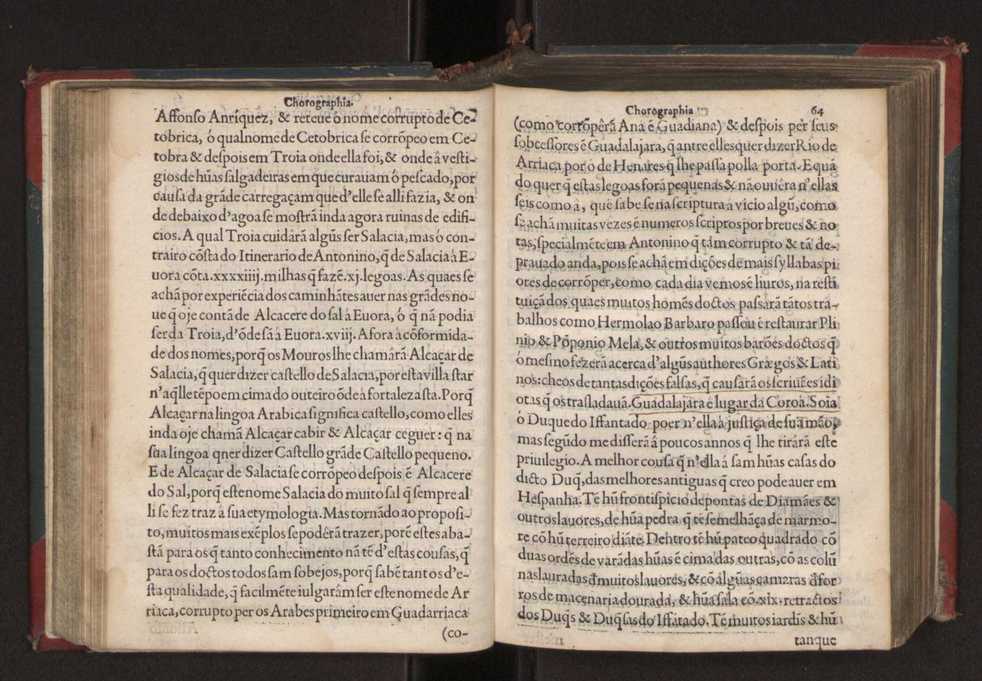 Chorographia.
Affonso Anriquez, & reteue o nome corrupto de Ce-
tobrica, ó qual nome de Cetobrica se corrõpeo em Ce-
tobra & despois em Troia onde ella foi, & onde á vesti-
gios de hũas salgadeiras em que curauam ó pescado, por
causa da grãde carregaçam que d'elle se alli fazia, & on
de debaixo d'agoa se mostrã inda agora ruinas de edifi-
cios. A qual Troia cuidarã algũs ser Salacia, mas ó con-
trairo cõsta do Itinerario de Antonino, q̃ de Salacia à E-
uora cõta .xxxxiiij. milhas q̃ fazẽ .xj. legoas. As quaes se
achã por experiẽcia dos caminhãtes auer nas grãdes no-
ue q̃ oje contã de Alcacere do sal à Euora, ó q̃ nã podia
ser da Troia, d'õde sã à Euora .xviij. Afora à cõformida-
de dos nomes, porq̃ os Mouros lhe chamârã Alcaçar de
Salacia, q̃ quer dizer castello de Salacia, por esta villa star
n'aq̃lle tẽpo em cima do outeiro õde à fortaleza sta. Porq̃
Alcaçar na lingoa Arabica significa castello, como elles
inda oje chamã Alcaçar cabir & Alcaçar ceguer: q̃ na
sua lingoa quer dizer Castello grãde Castello pequeno.
E de Alcaçar de Salacia se corrõpeo despois ẽ Alcacere
do Sal, porq̃ este nome Salacia do muito sal q̃ sempre al
li se fez traz à sua etymologia. Mas tornãdo ao proposi-
to, muitos mais exẽplos se podẽrã trazer, porẽ estes aba-
stã para os q̃ tanto conhecimento nã tẽ d'estas cousas, q̃
para os doctos todos sam sobejos, porq̃ sabẽ tantos d'e-
sta qualidade, q̃ facilmẽte iulgarâm ser este nome de Ar
riaca, corrupto per os Arabes primeiro em Guadarriaca
(co-
Chorographia 64
(como corrõpêrã Ana ẽ Guadiana) & despois per seus
sobcessores ẽ Guadalajara, q̃ antre elles quer dizer Rio de
Arriaca por ó de Henares q̃ lhe passa polla porta. E quã
do quer q̃ estas legoas forã pequenas & nã ouuera n'ellas
seis como á, que sabe se na scriptura á vicio algũ, como
se achã muitas vezes ẽ numeros scriptos por breues & no
tas, specialmẽte em Antonino q̃ tãm corrupto & tã de-
prauado anda, pois se achã em dições de mais syllabas pi
ores de corrõper, como cada dia vemos ẽ liuros, na resti
tuiçã dos quaes muitos homẽs doctos passarã tãtos tra-
balhos como Hermolao Barbaro passou ẽ restaurar Pli
nio & Põponio Mela, & outros muitos barões doctos q̃
ó mesmo fezerã acerca d'algũs authores Græ gos & Lati
nos: cheos de tantas dições falsas, q̃ causarã os scriuẽes idi
otas q̃ os trasladauã. Guadalajara é lugar da Coroa. Soia
ó Duque do Iffantado poer n'ella à justiça de sua mão,
mas segũdo me disserã á poucos annos q̃ lhe tirárã este
priuilegio. A melhor cousa q̃ n'ella á sam hũas casas do
dicto Duq̃, das melhores antiguas q̃ creo pode auer em
Hespanha. Tẽ hũ frontispicio de pontas de Diamães &
outros lauores, de hũa pedra q̃ tẽ semelhãça de marmo-
re cõ hũ terreiro diãte. Dentro tẽ hũ pateo quadrado cõ
duas ordẽs de varãdas hũas ẽ cima das outras, cõ as colũ
nas lauradas d̃ muitos lauores, & cõ algũas camaras d̃ for
ros de macenaria dourada, & hũa sala cõ .xix. retractos
dos Duq̃s & Duq̃sas do Iffãtado. Tẽ muitos iardĩs & hũ
tanque